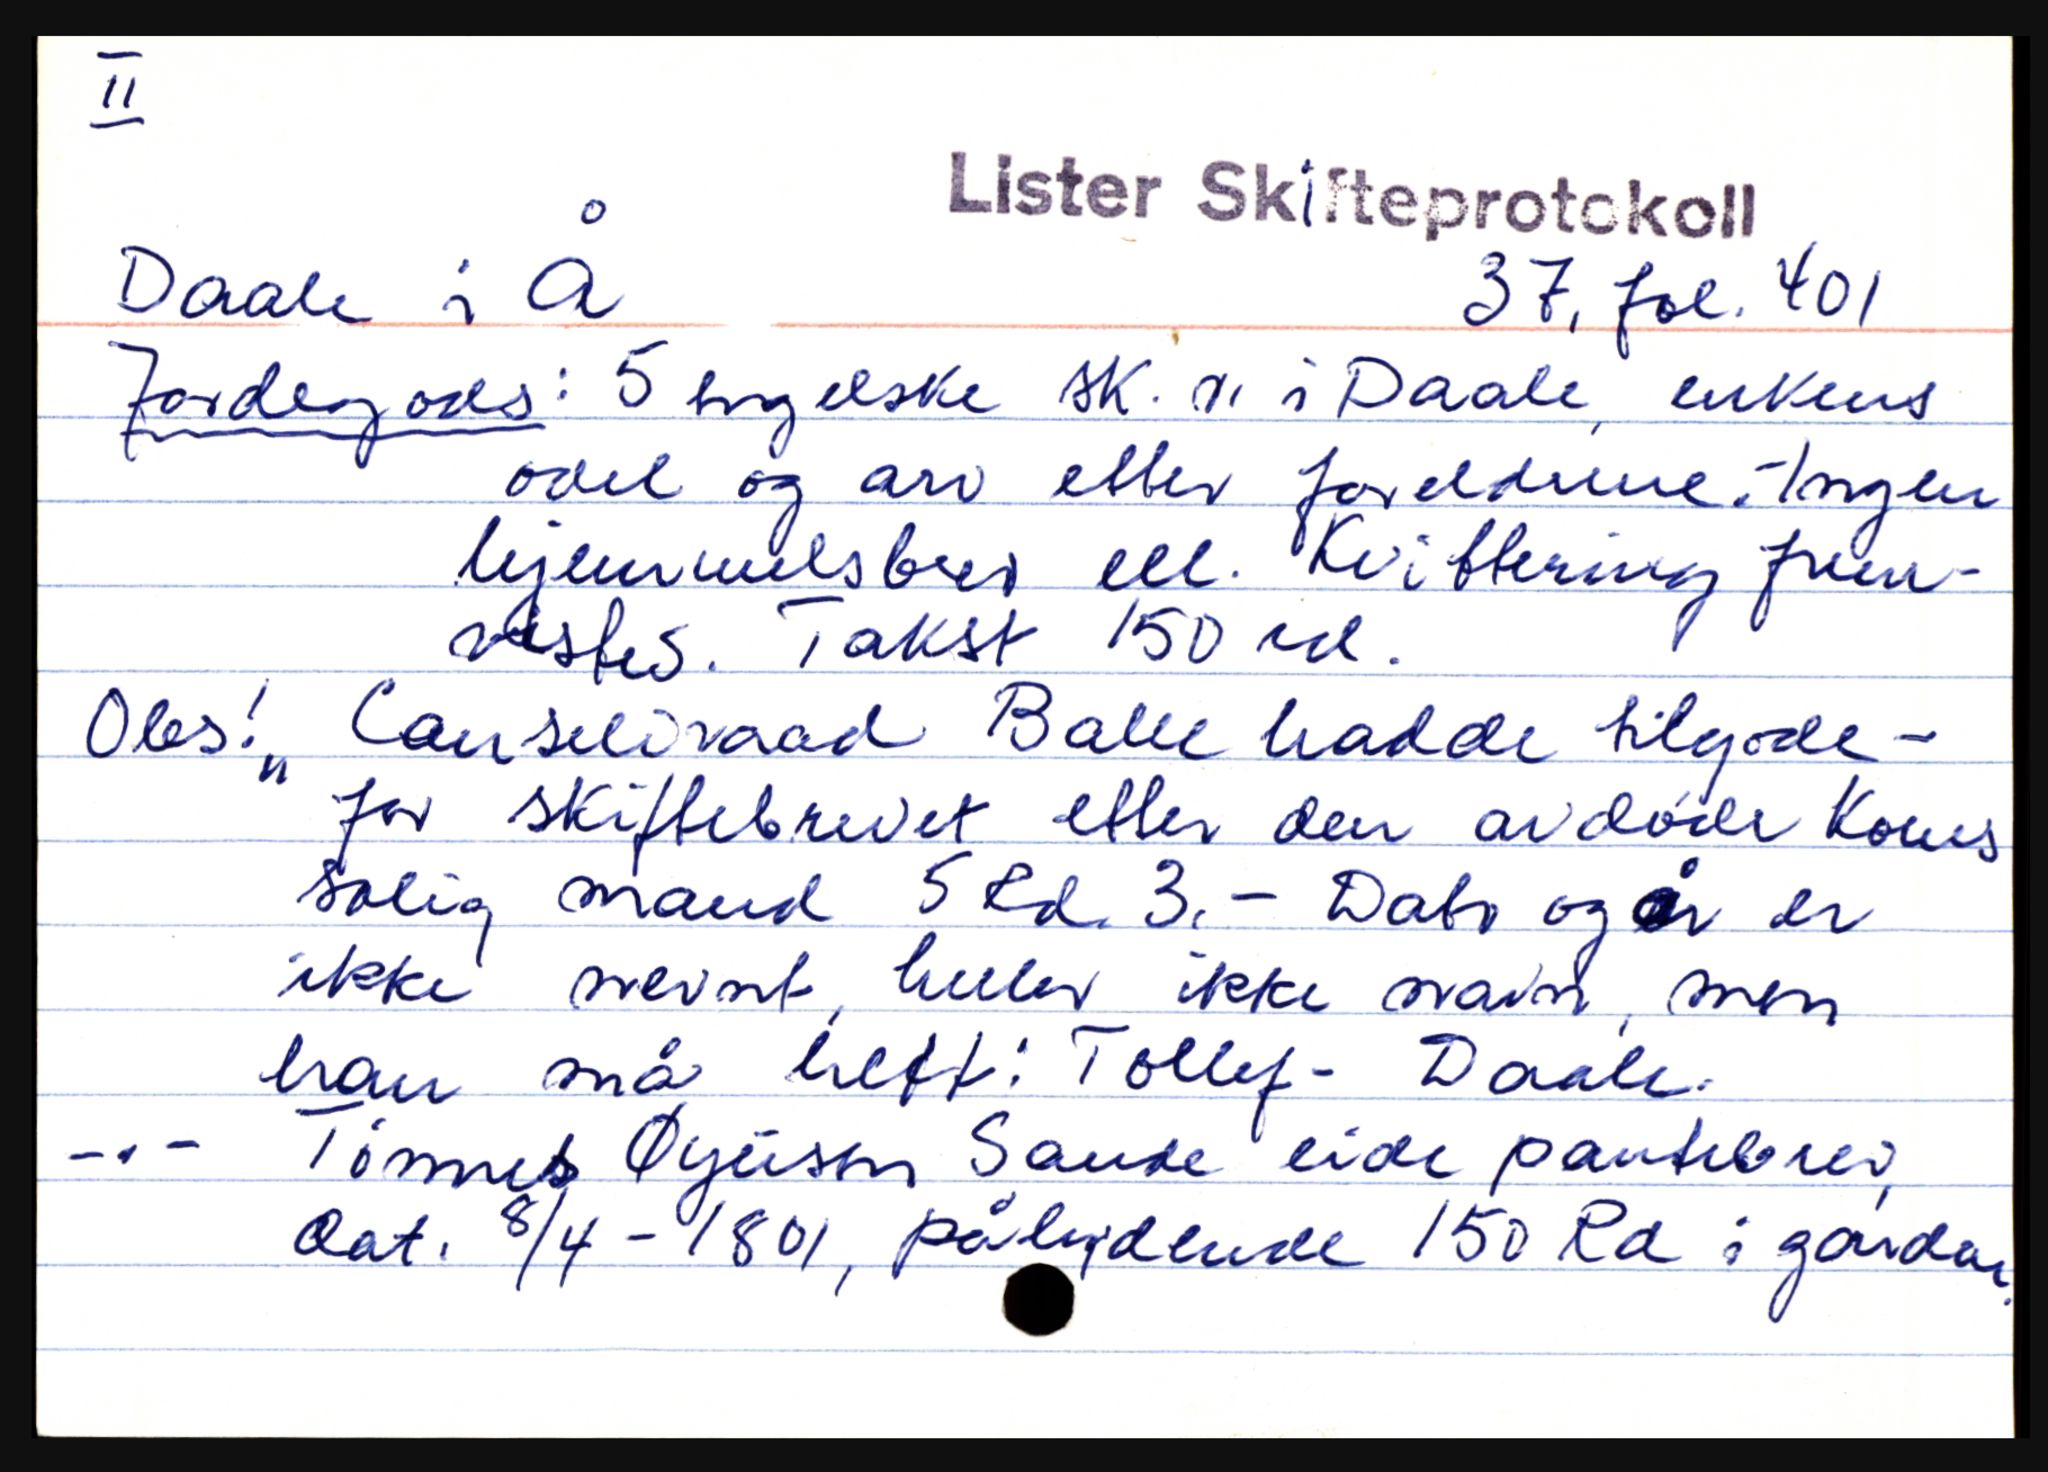 II
Lister Skifteprotokoll
Daale i Å 37, fol. 401
Jordegods: 5 engelske sk. i Daale, enkens
odel og arv etter foreldrene. - Ingen
hjemmelsbrev ell. Kvittering frem-
vistes. Takst 150 rd.
Obs! " Canseliraad Balle hadde tilgode -
for skiftebrevet etter den avdøde Kones
salig mand 5 Rd. 3. - Dato og år er
ikke nevnt, heller ikke navn, men
han må hett: Tollef - Daale.
-.- Tønnes Øyüsen Sande eide pantebrev,
dat. 8/4 - 1801, pålydende 150 Rd i gården.